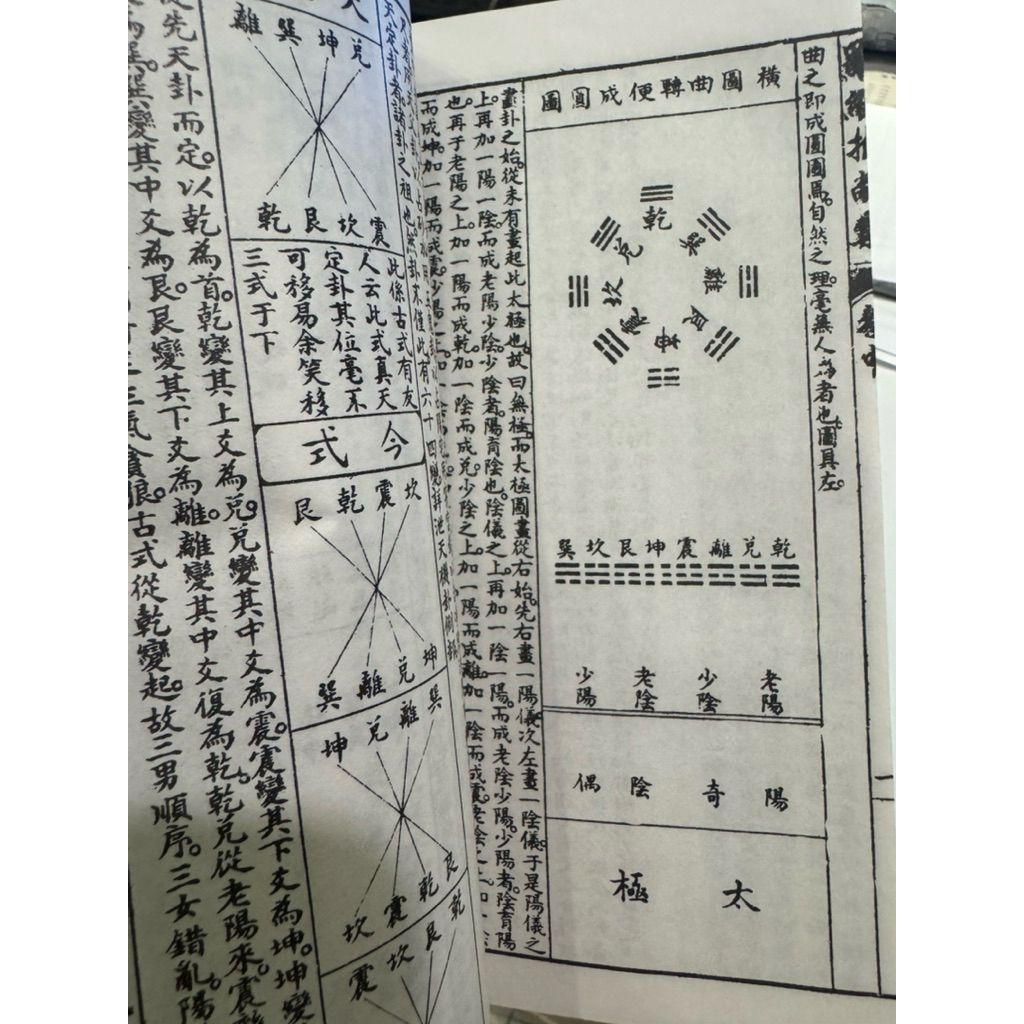 曲之即成圓圖爲自然之理毫無人為者也圖具左。
橫圖曲轉便成圓圖
乾
兌
巽
坎
離
震
艮
坤
乾兌離震坤艮坎巽
老陽
少陰
老陰
少陽
陽奇
陰偶
太極
畫卦之始。從未有畫起此太極也。故曰無極。而太極圖畫從右始。先右畫一陽儀。次左畫一陰儀。于是陽儀之
上。再加一陽一陰。而成老陽少陰。少陰者。陽育陰也。陰儀之上。再加一陰一陽。而成老陰少陽。少陽者。陰育陽
也。再于老陽之上。加一陽而成乾。加一陰而成兌。少陰之上。加一陽而成離。加一陰而成震。老陰之上。加一陰
而成坤。加一陽而成
天定卦者。諸卦之祖也。
離巽坤兌
乾艮坎震
此係古式有友
人云此式真天
定卦其位毫不
可移易余笑移
三式于下
今式
艮乾震坎
巽離兌坤
坤兌離巽
坎震乾艮
震坎艮乾
從先天卦而定。以乾為首。乾變其上爻為兌。兌變其中爻為震。震變其下爻為坤。坤變
為巽。巽變其中爻為艮。艮變其下爻為離。離變其中爻復為乾。乾兌從老陽來。震
貪狼。古式從乾變起。故三男順序。三女錯亂。陽